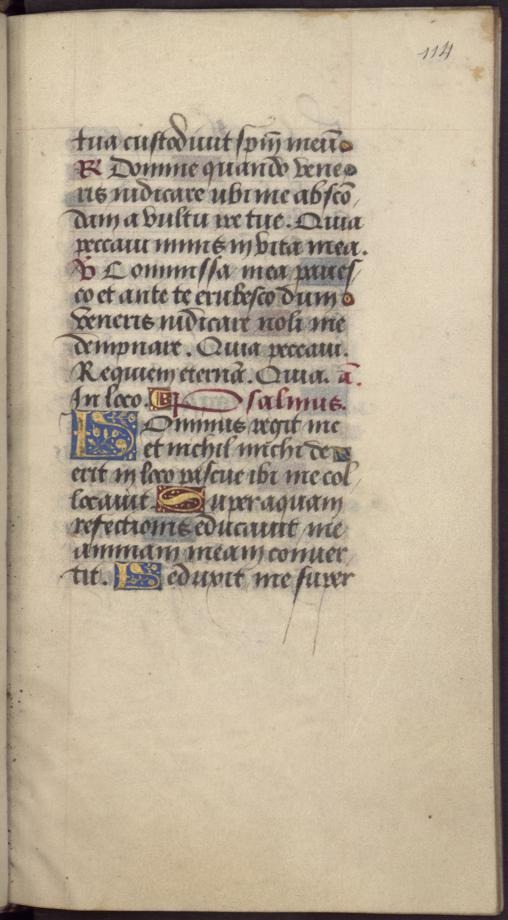 114
tua custodiuit sp̄m meū
R̷ Domine quando vene
ris iudicare vbi me absco
dam a vultu ire tue. Quia
peccaui nimis in vita mea.
V̷ Commissa mea paues
co et ante te erubesco dum
veneris iudicare noli me
dempnare. Quia peccaui.
Requiem eternā. Quia. a.
In loco. Psalmus.
Dominus regit me
et nichil michi de
erit in loco pascue ibi me col
locauit. Super aquam
refectionis educauit me
animam meam conuer
tit. Deduxit me super